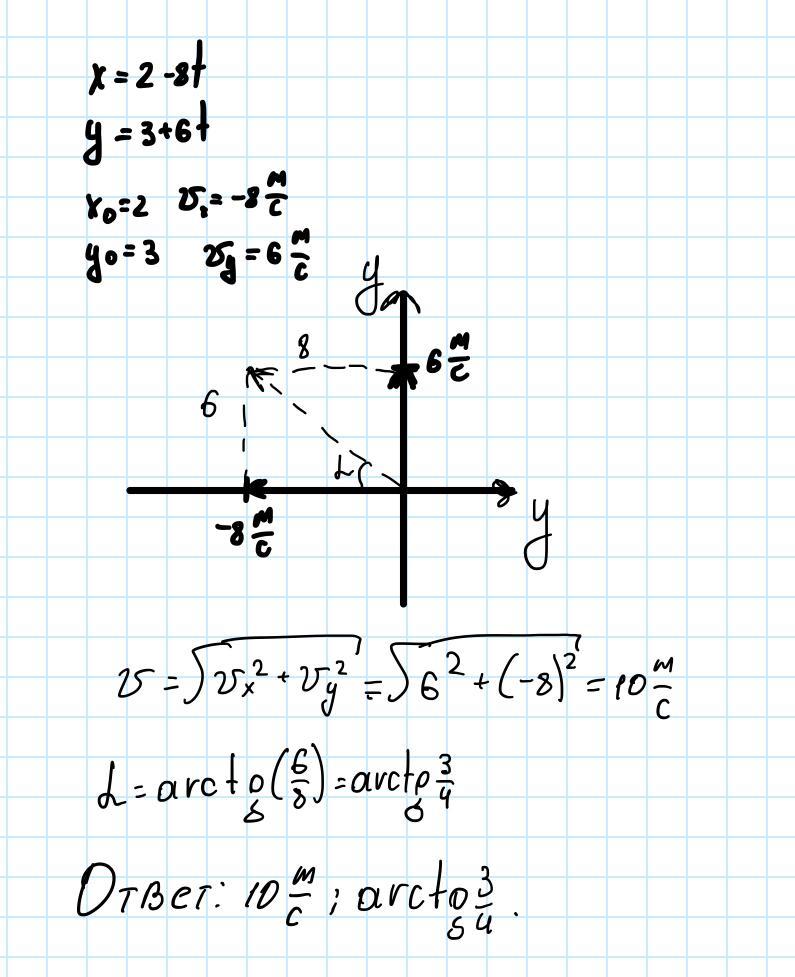 x = 2 - 8t
y = 3 + 6t
x₀ = 2 υₓ = -8 м/с
y₀ = 3 υy = 6 м/с
y
8
6 м/с
6
α
-8 м/с
y
υ = √(υₓ² + υy²) = √(6² + (-8)²) = 10 м/с
α = arctg(6/8) = arctg 3/4
Ответ: 10 м/с ; arctg 3/4 .